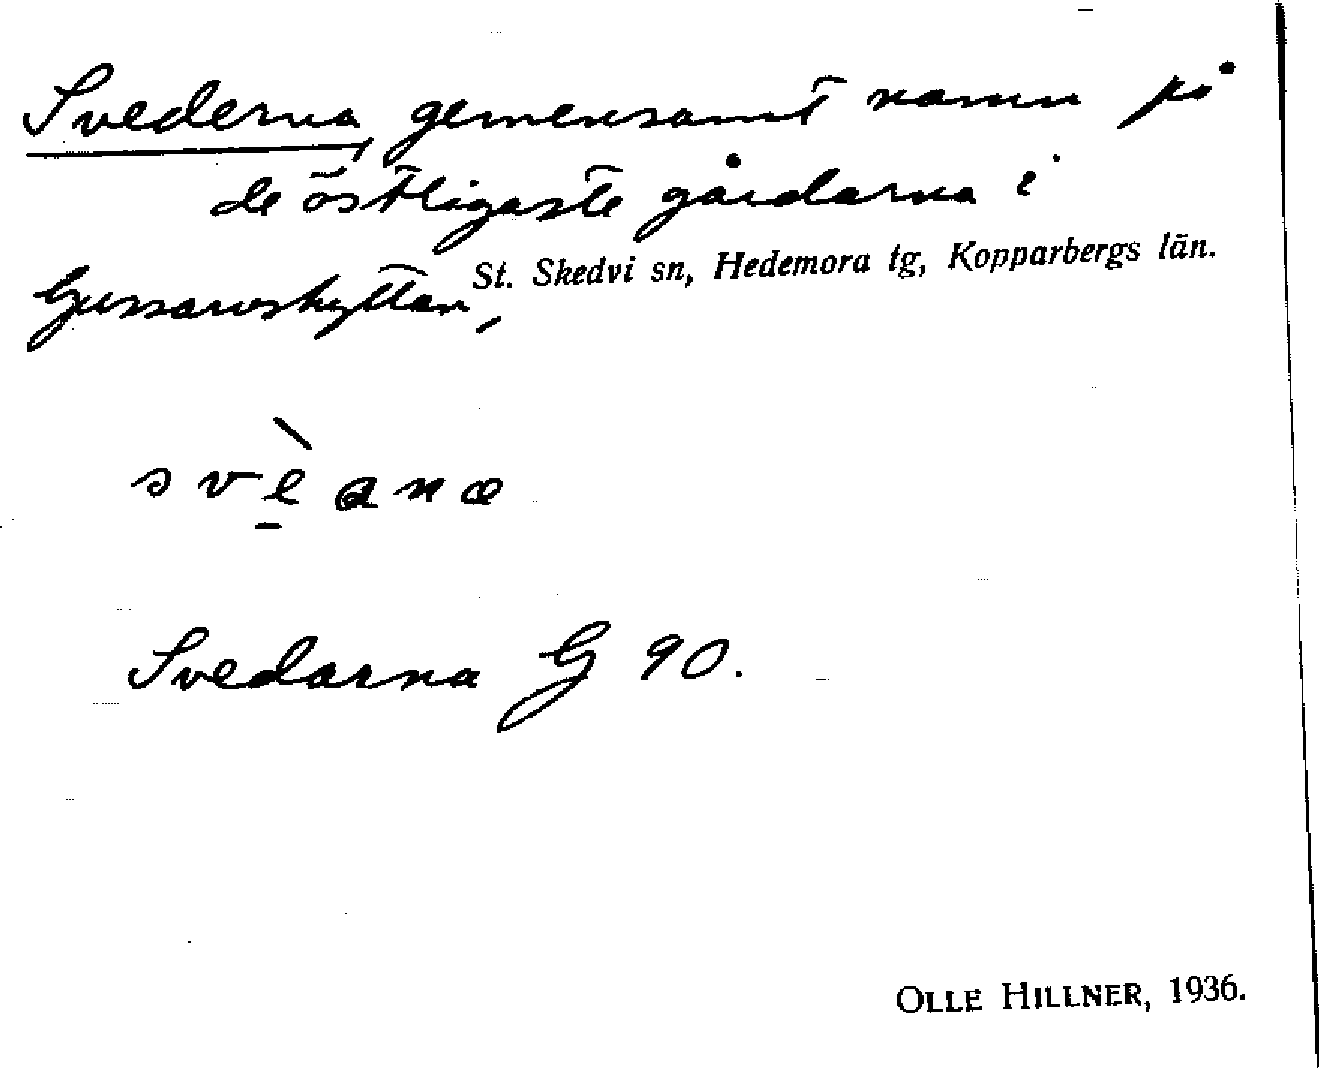 Svederna, gemensamt namn på
de östligaste gårdarna i
Gussarvshyttan, St. Skedvi sn, Hedemora tg, Kopparbergs län.
svè̱ana
Svedarna G 90.
OLLE HILLNER, 1936.